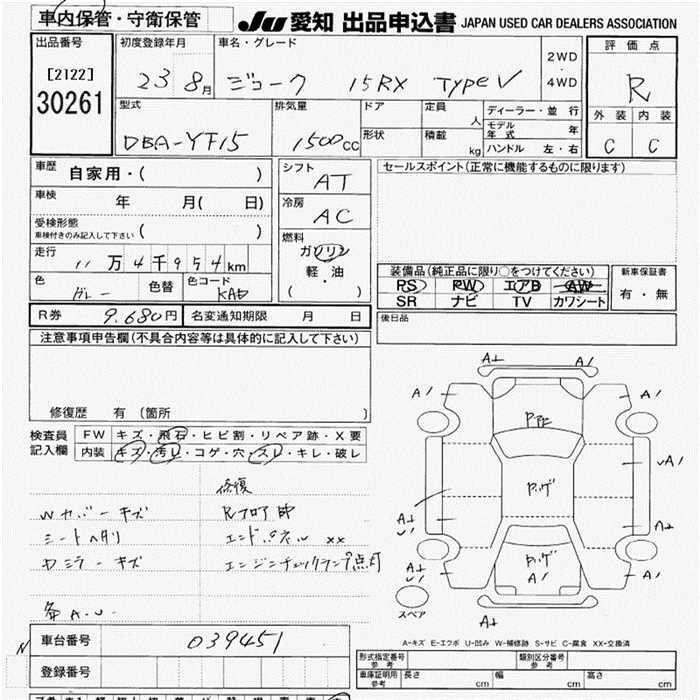 車内保管・守衛保管
JU 愛知 出品申込書 JAPAN USED CAR DEALERS ASSOCIATION
出品番号 初度登録年月 車名・グレード 評価点
[2122] 23 8月 ジューク 15RX TypeV 2WD・4WD R
30261
型式 排気量 ドア 定員 人 ディーラー・並行 外装 内装
モデル年式 年
DBA-YF15 1500cc 形状 積載 kg ハンドル 左・右 C C
車歴 自家用・( ) シフト AT セールスポイント(正常に機能するものに限ります)
車検 年 月( 日) 冷房 AC
受検形態 ( )
車検付きのみ記入して下さい
走行 11万4千954km 燃料 ガソリン 軽・油 ( )
装備品(純正品に限り○をつけてください) 新車保証書
色 グレー 色替 色コード KAD
PS RW エアB AW 有・無
SR ナビ TV カワシート
R券 9.680円 名変通知期限 月 日 後日品
注意事項申告欄(不具合内容等は具体的に記入して下さい)
修復歴 有 (箇所 )
検査員 FW キズ・飛石・ヒビ割・リペア跡・X要
記入欄 内装 キズ・汚レ・コゲ・穴・スレ・キレ・破レ
修復
Wカバーキズ Rフロア
シートヘタリ エンドパネル xx
ミラーキズ エンジンチェックランプ点灯
各A.U-
A+ A/
A/ A/
Pアゼ
ルーフ
A+ U/ A+
A+ U/
A/
スペア A+
A-キズ E-エクボ U-凹み W-補修跡 S-サビ C-腐食 XX-交換済
N 車台番号 039451
形式指定番号 参考 類別区分番号 参考
登録番号 車庫証明 参考 長さ cm 幅 cm 高さ cm